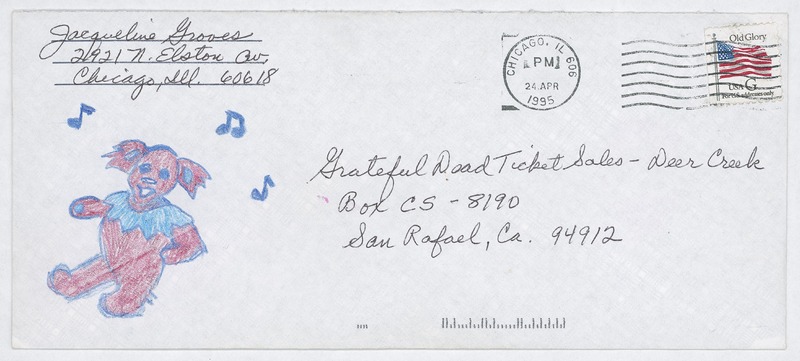 Jacqueline Groves
2921 N. Elston Av,
Chicago, Ill. 60618
CHICAGO, IL 606
PM
24 APR
1995
Old Glory
USA G
For U.S. addresses only
Grateful Dead Ticket Sales - Deer Creek
Box CS - 8190
San Rafael, Ca. 94912